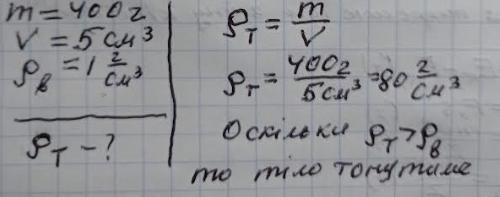 m = 400 г
V = 5 см³
ρв = 1 г/см³
ρт - ?
ρт = m/V
ρт = 400 г/5 см³ = 80 г/см³
Оскільки ρт > ρв
то тіло тонутиме